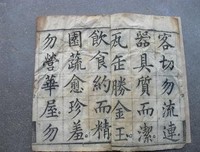 客切勿流連
器具質而潔
瓦缶勝金玉
飲食約而精
園蔬愈珍羞
勿營華屋勿